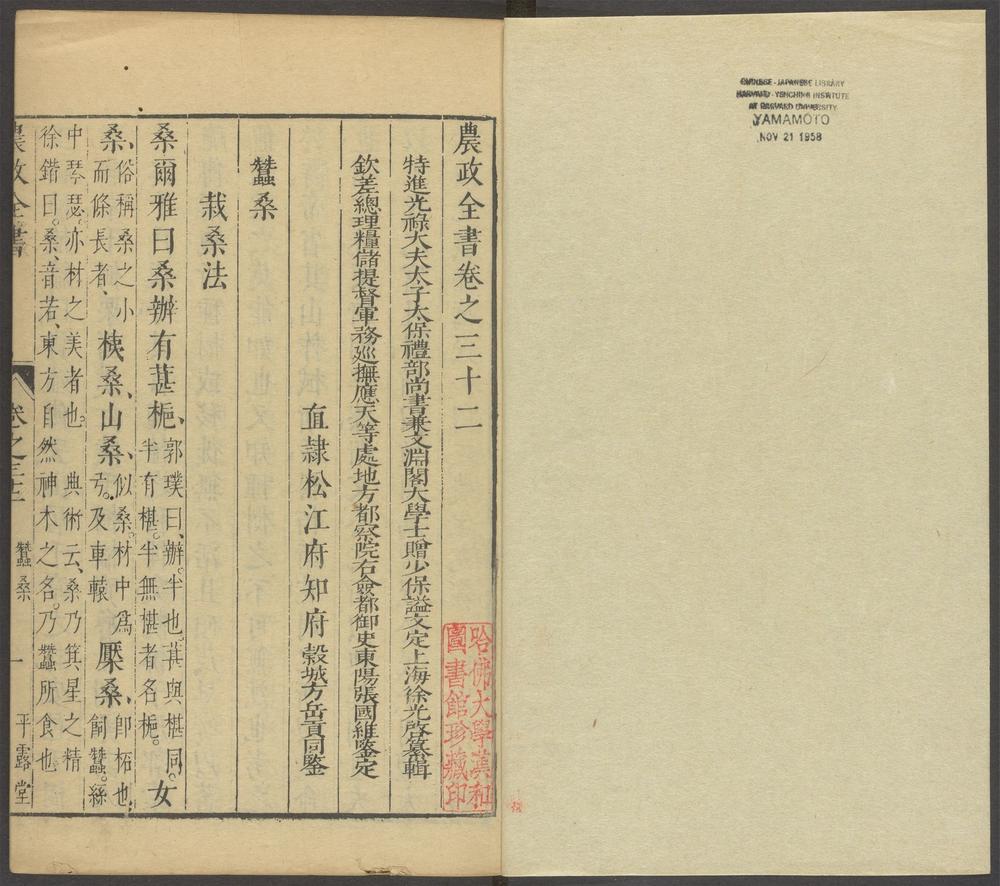 CHINESE-JAPANESE LIBRARY
HARVARD-YENCHING INSTITUTE
AT HARVARD UNIVERSITY
YAMAMOTO
NOV 21 1958
農政全書卷之三十二
特進光祿大夫太子太保禮部尚書兼文淵閣大學士贈少保謚文定上海徐光啓纂輯
欽差總理糧儲提督軍務巡撫應天等處地方都察院右僉都御史東陽張國維鑒定
直隷松江府知府穀城方岳貢同鑒
蠶桑
栽桑法
桑爾雅曰桑辦有葚梔、郭璞曰、辦。半也、葚與椹同。半有椹。半無椹者名梔。女
桑、俗稱桑之小而條長者、桋桑、山桑、似桑。材中爲弓。及車轅 檿桑、卽柘也、飼蠶。絲
中琴瑟、亦材之美者也。 典術云、桑乃箕星之精
徐鍇曰。桑、音若、東方自然神木之名。乃蠶所食也
農政全書 卷之三十二 蠶桑 一 平露堂
哈佛大學漢和圖書館珍藏印